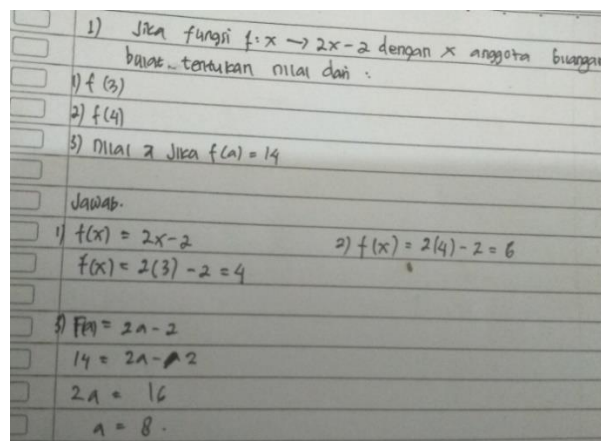 1) Jika fungsi f: x → 2x-2 dengan x anggota
bulat. tentukan nilai dari :
1) f (3)
2) f(4)
3) nilai a Jika f(a) = 14
Jawab.
1) f(x) = 2x-2
2) f(x) = 2(4) - 2 = 6
f(x) = 2(3) - 2 = 4
3) F(a) = 2a - 2
14 = 2a - 2
2a = 16
a = 8.